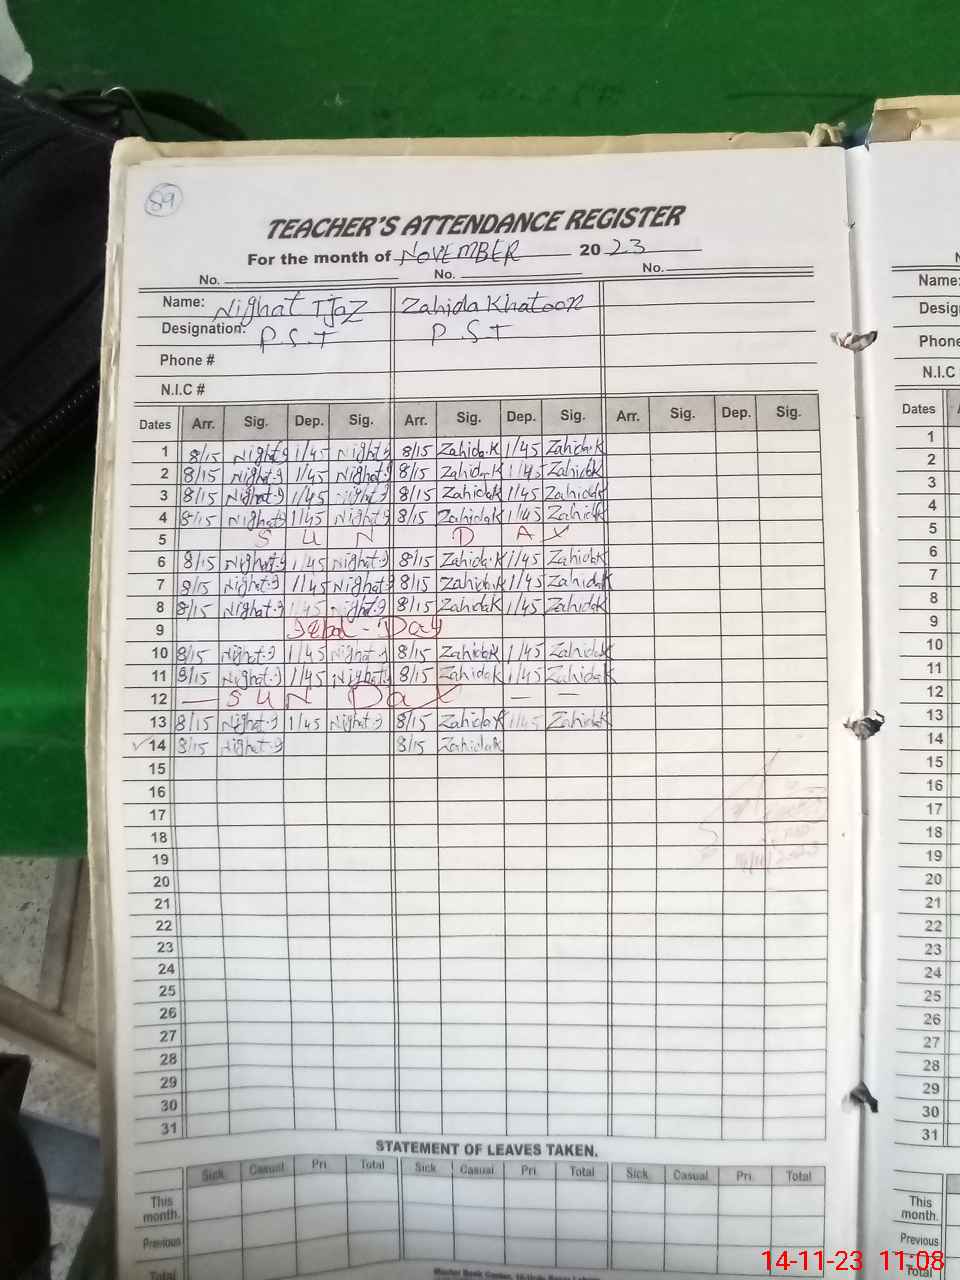 89
TEACHER'S ATTENDANCE REGISTER
For the month of NOVEMBER 2023
No. No. No.
Name: Nighat Ijaz Zahida Khatoon
Designation: P.S.T P.S.T
Phone #
N.I.C #
Dates Arr. Sig. Dep. Sig. Arr. Sig. Dep. Sig. Arr. Sig. Dep. Sig.
1 8/15 Nighat.g 1/45 Nighat.g 8/15 Zahida.K 1/45 Zahida.K
2 8/15 Nighat.g 1/45 Nighat.g 8/15 Zahida.K 1/45 ZahidaK
3 8/15 Nighat.g 1/45 Nighat.g 8/15 ZahidaK 1/45 ZahidaK
4 8/15 Nighat.g 1/45 Nighat.g 8/15 ZahidaK 1/45 ZahidaK
5 S U N D A Y
6 8/15 Nighat.g 1/45 Nighat.g 8/15 Zahida.K 1/45 ZahidaK
7 8/15 Nighat.g 1/45 Nighat.g 8/15 ZahidaK 1/45 ZahidaK
8 8/15 Nighat.g 1/45 Nighat.g 8/15 ZahidaK 1/45 ZahidaK
9 Iqbal - Day
10 8/15 Nighat.g 1/45 Nighat.g 8/15 ZahidaK 1/45 ZahidaK
11 8/15 Nighat.g 1/45 Nighat.g 8/15 ZahidaK 1/45 ZahidaK
12 — SUN Day — —
13 8/15 Nighat.g 1/45 Nighat.g 8/15 ZahidaK 1/45 ZahidaK
14 8/15 Nighat.g 8/15 ZahidaK
15
16
17
18
19
20
21
22
23
24
25
26
27
28
29
30
31
STATEMENT OF LEAVES TAKEN.
Sick Casual Pri. Total Sick Casual Pri. Total Sick Casual Pri. Total
This month.
Previous
Total
Name:
Phone #
N.I.C
Dates
1
2
3
4
5
6
7
8
9
10
11
12
13
14
15
16
17
18
19
20
21
22
23
24
25
26
27
28
29
30
31
This month.
Previous
Total
14-11-23 11:08